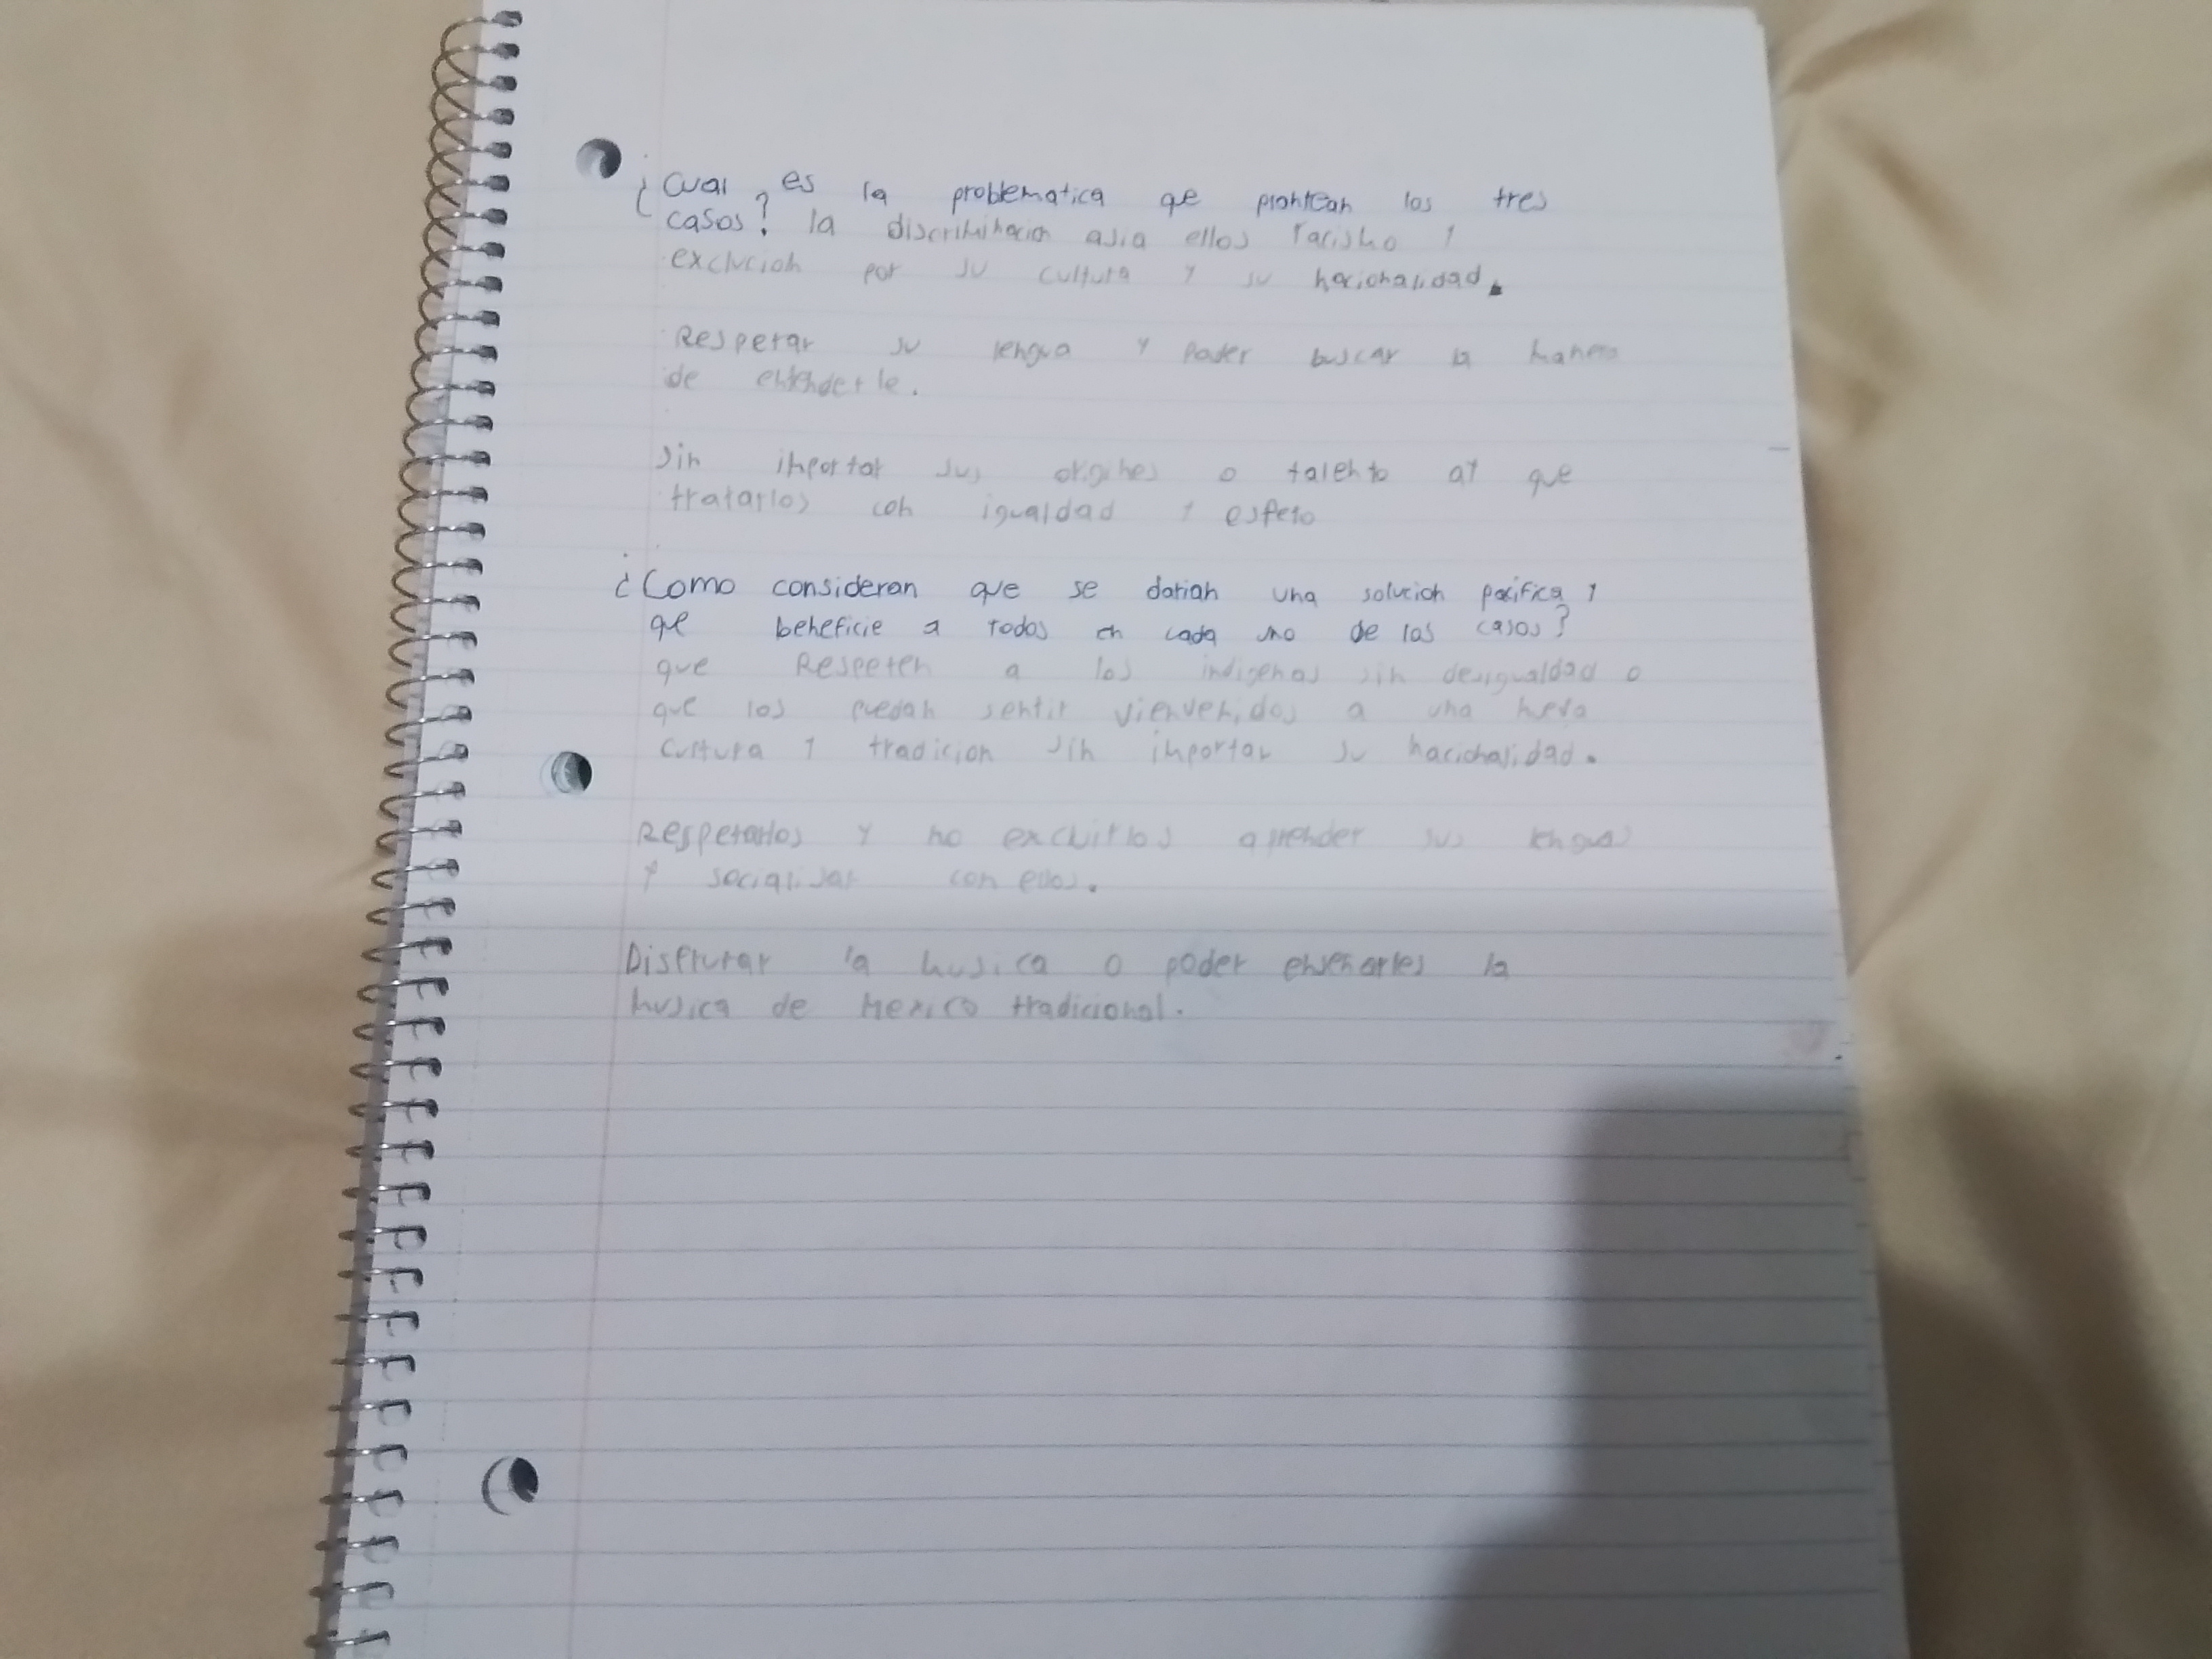 ¿Cual es la problematica que plantean los tres
casos? la discriminacion asia ellos racismo y
exclucion por su cultura y su nacionalidad.
Respetar su lengua y poder buscar la manera
de entenderle.
Sin importar sus origines o talento ay que
tratarlos con igualdad y espeto
¿Como consideran que se darian una solucion pacifica y
que beneficie a todos en cada uno de los casos?
que Respeten a los indigenas sin desigualdad o
que los puedan sentir vienvenidos a una nueva
cultura y tradicion sin importar su nacionalidad.
Respetarlos y no excluirlos aprender sus lenguas
y socialisar con ellos.
Disfrutar la musica o poder enseñarles la
musica de Mexico tradicional.